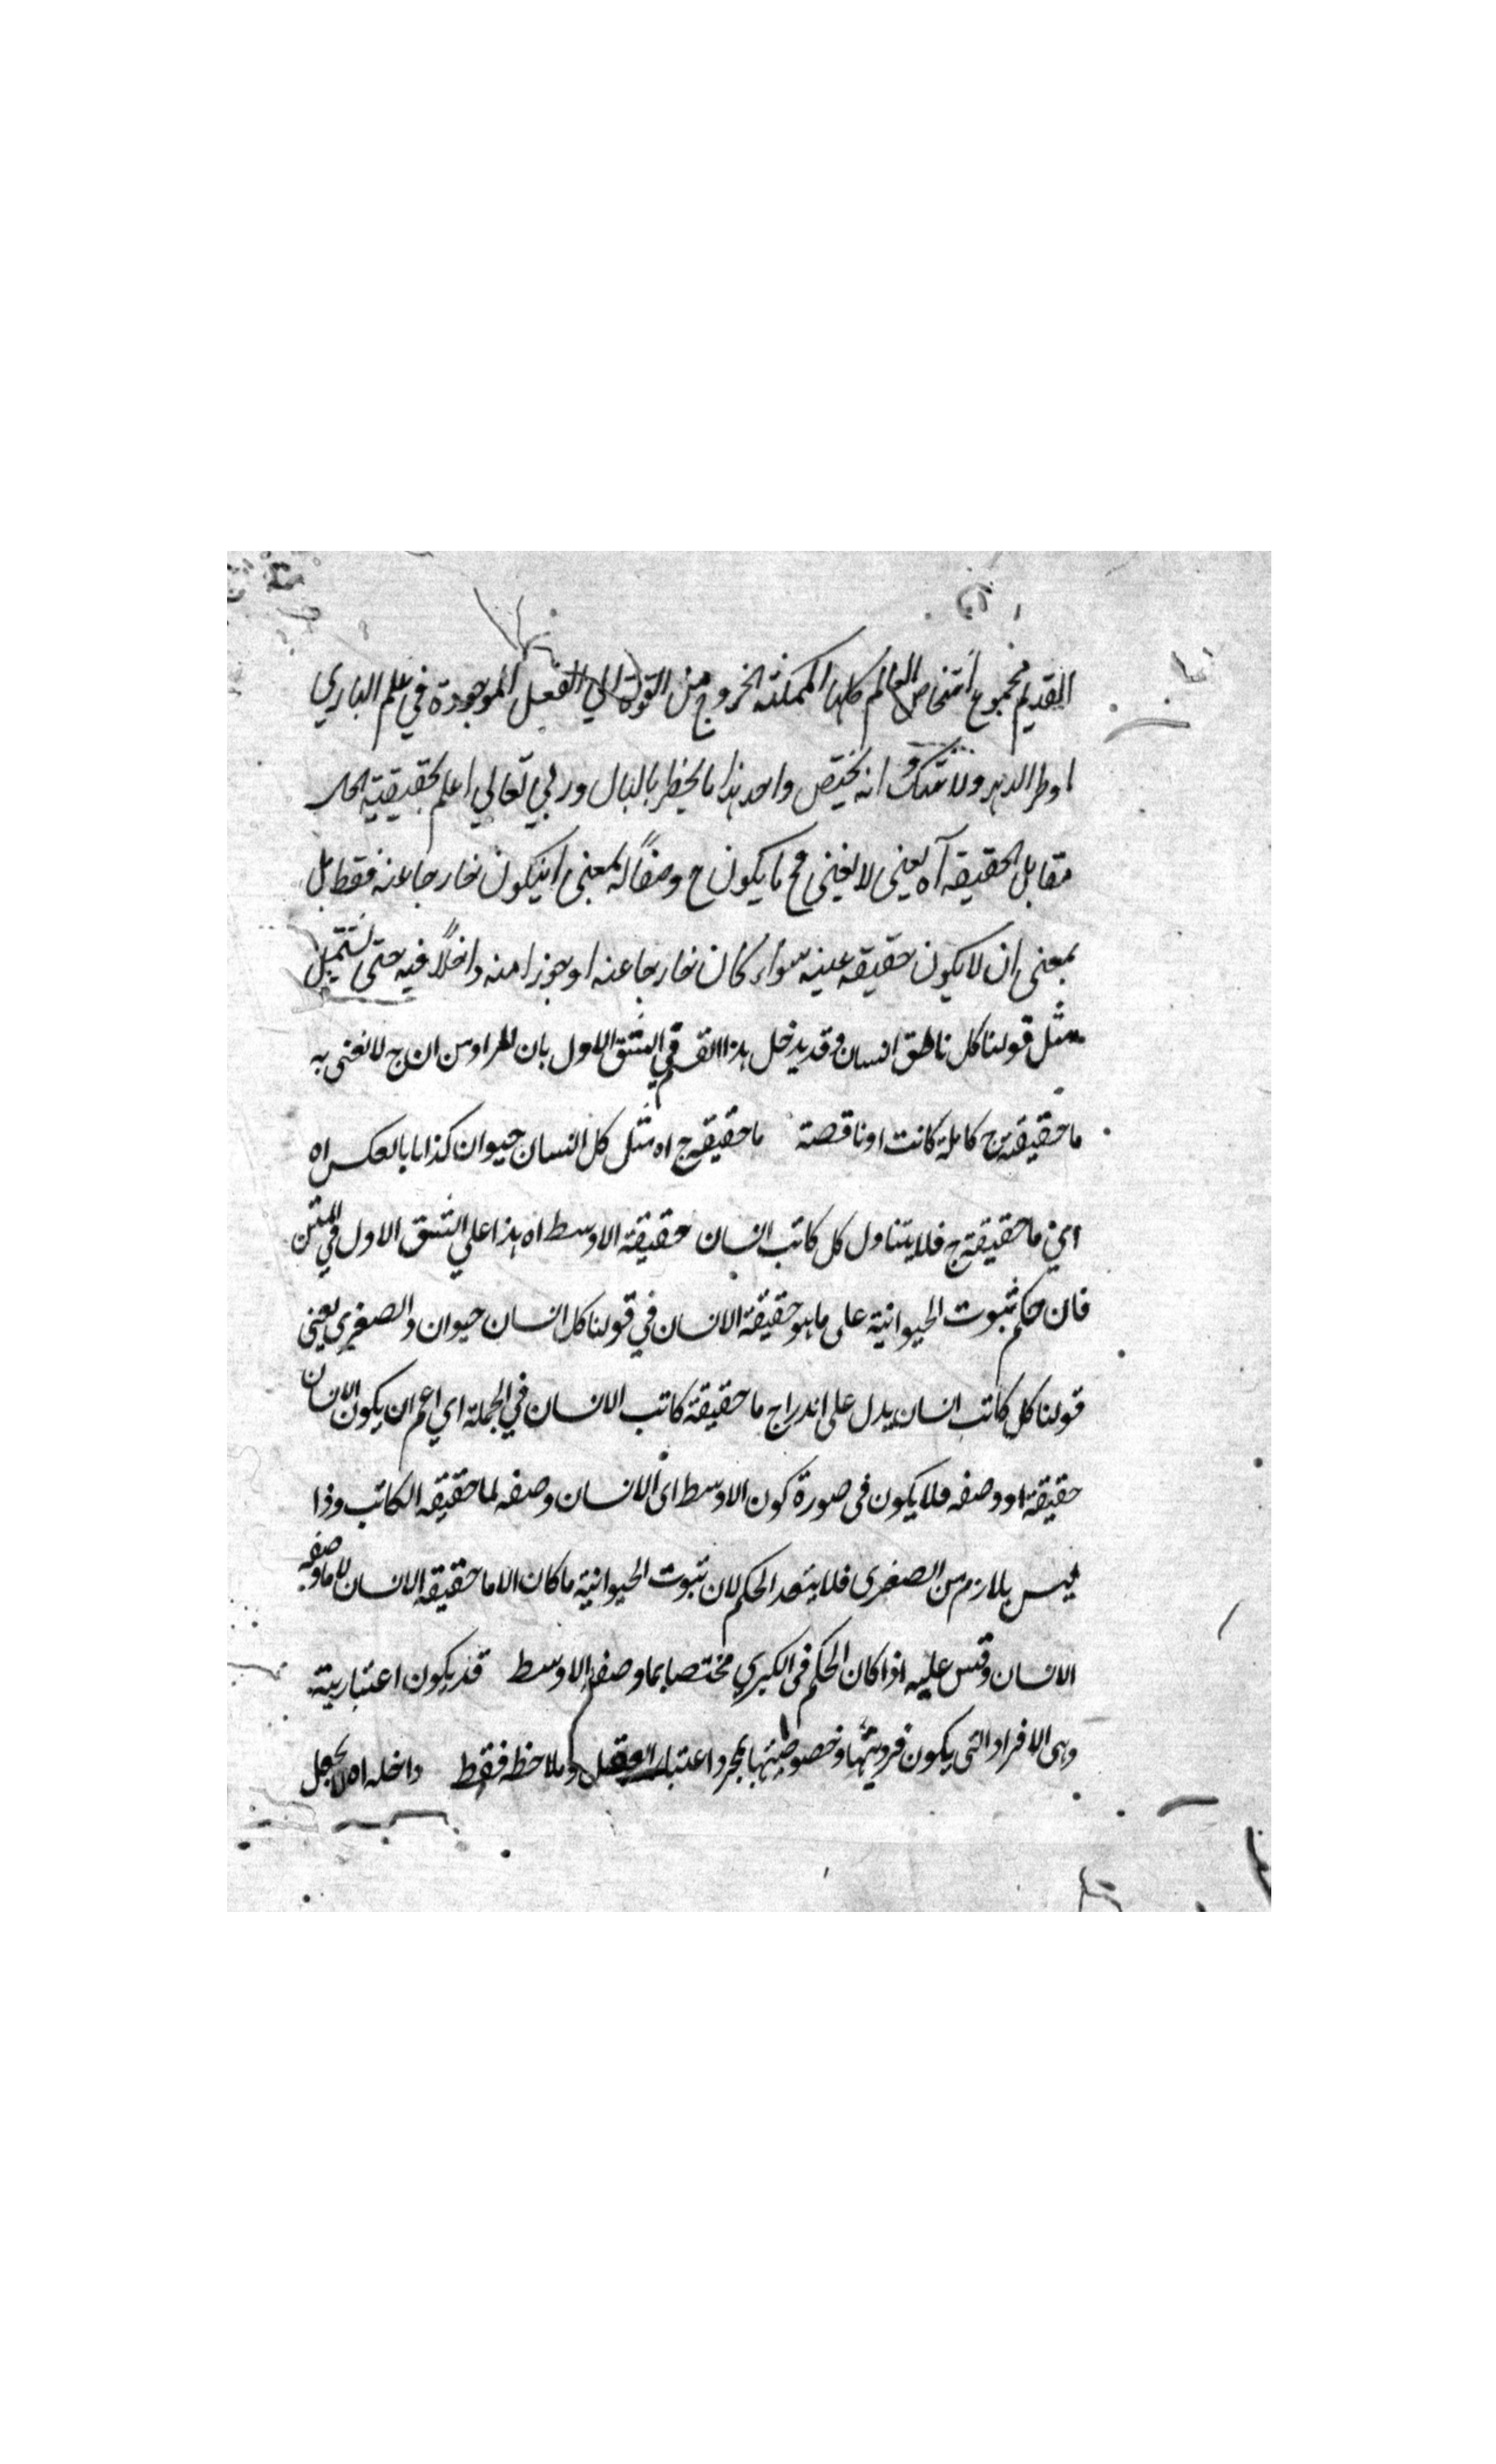 القديم مجموع اشخاص العالم كلها الممكنة الخروج من القوة الي الفعل الموجودة في علم الباري
او ظرا الدهر ولا شك انه يختص واحد هذا ما يخطر بالبال وربي تعالي اعلم بحقيقية الحال
مقابل الحقيقة آه يعني لا نعني مح ما يكون ح وصفاً له بمعنى ان يكون خارجا عنه فقط بل
بمعنى ان لا يكون حقيقه عينه سواء كان خارجا عنه او جزرا منه داخلاً فيه حتى يشتمل
مثل قولنا كل ناطق انسان وقد يدخل هذا القسم في الشق الاول بان المراد من ان ج لا نعنى به
ما حقيقته ج كاملة كانت او ناقصة ما حقيقه ج اه مثل كل انسان حيوان كذا بالعكس اه
اي ما حقيقته ج فلا يتناول كل كاتب انسان حقيقة الاوسط اه هذا علي الشق الاول في المتن
فان حكم ثبوت الحيوانية على ما هو حقيقة الانسان في قولنا كل انسان حيوان والصغري يعني
قولنا كل كاتب انسان يدل على اندراج ما حقيقة كاتب الانسان في الجملة اي اعم ان يكون الانسان
حقيقة او وصفه فلا يكون فى صورة كون الاوسط اى الانسان وصفه لما حقيقه الكاتب وذا
ليس بلازم من الصغرى فلا يتعد الحكم لان ثبوت الحيوانية ما كان الا ما حقيقة الانسان لا ما وصفه
الانسان وقس عليه اذا كان الحكم فى الكبري مختصا بما وصفه الاوسط قد يكون اعتبارية
وهى الافراد التى يكون فرديتها وخصوصيتها بمجرد اعتبار العقل وملاحظه فقط داخله اه لا يجعل